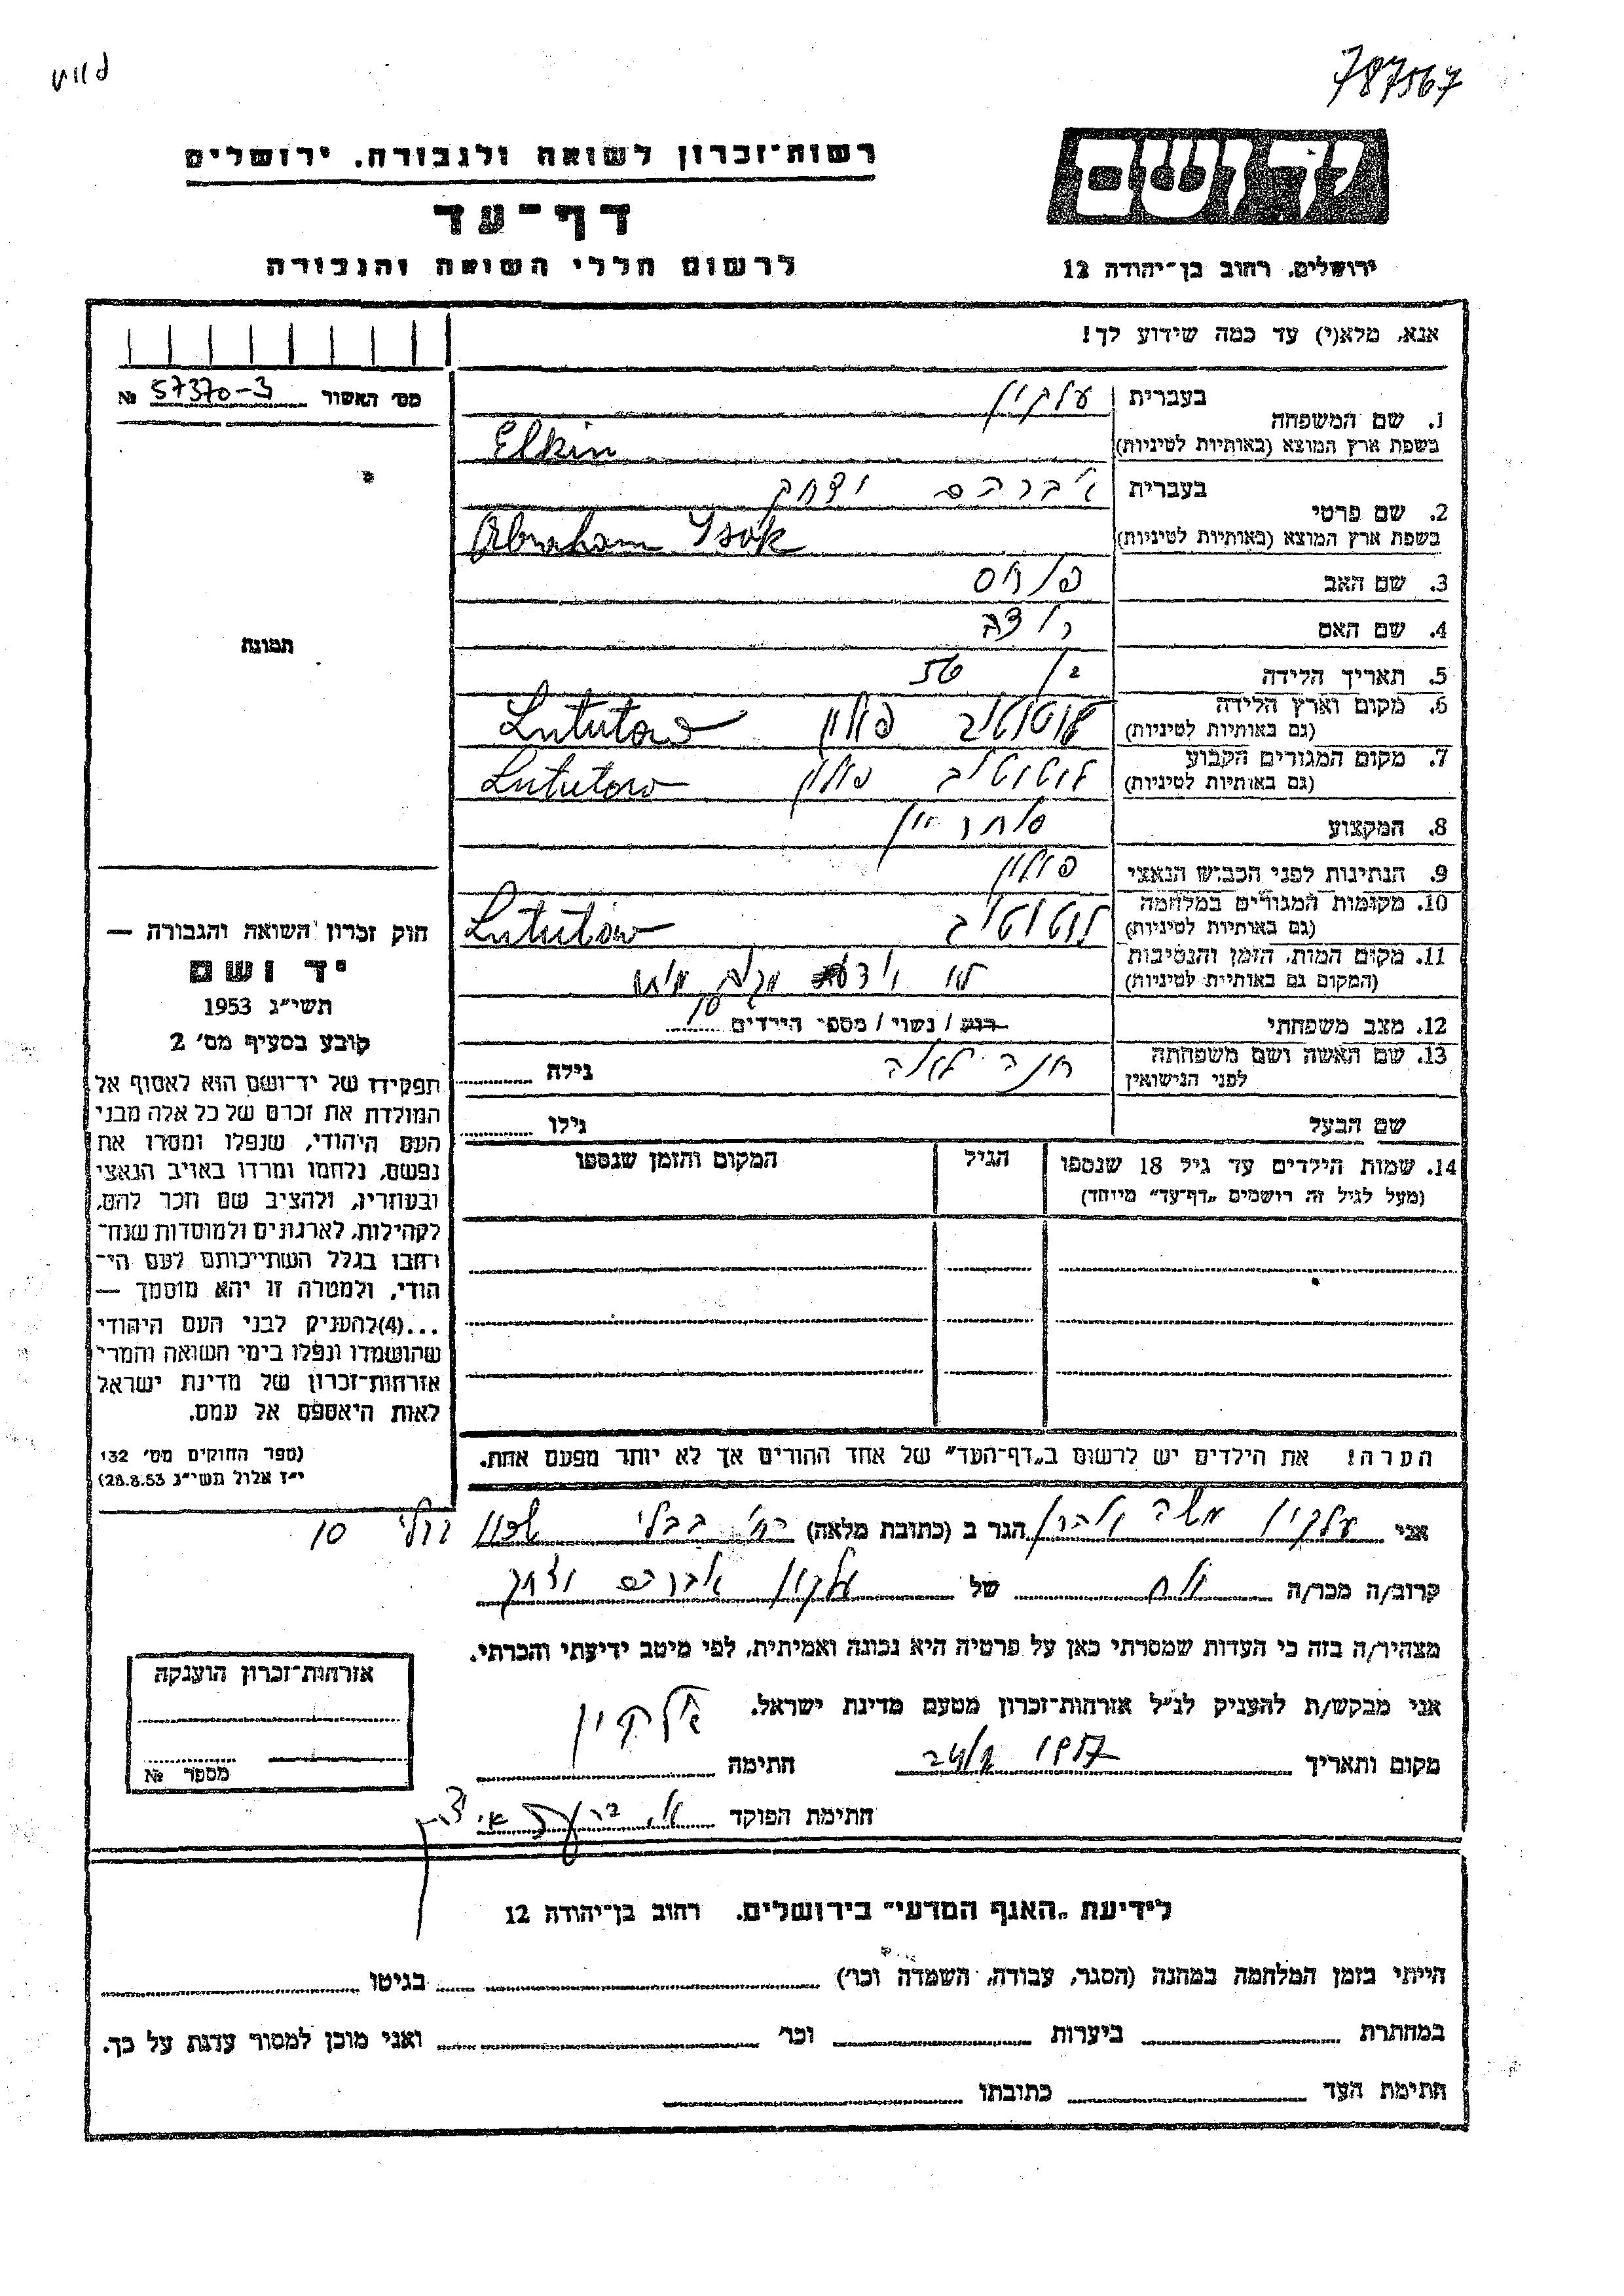 787567
רשות־זכרון לשואה ולגבורה, ירושלים
יד ושם
דף־עד
לרשום חללי השואה והגבורה
ירושלים, רחוב בן־יהודה 12
אנא, מלא(י) עד כמה שידוע לך!
מס׳ האשור 57370-3 №
1. שם המשפחה
בעברית עלקין
בשפת ארץ המוצא (באותיות לטיניות) Elkin
2. שם פרטי
בעברית אברהם יצחק
בשפת ארץ המוצא (באותיות לטיניות) Abraham Isak
3. שם האב
4. שם האם
תמונה
5. תאריך הלידה
6. מקום וארץ הלידה
(גם באותיות לטיניות) לוטוטוב פולין Lututow
7. מקום המגורים הקבוע
(גם באותיות לטיניות) לוטוטוב פולין Lututow
8. המקצוע סוחר יין
9. הנתינות לפני הכבוש הנאצי פולין
10. מקומות המגורים במלחמה
(גם באותיות לטיניות) לוטוטוב Lututow
11. מקום המות, הזמן והנסיבות
(המקום גם באותיות לטיניות) לא
12. מצב משפחתי רוק / נשוי / מספר הילדים 10
13. שם האשה ושם משפחתה
לפני הנישואין חנה גילה
שם הבעל גילו
14. שמות הילדים עד גיל 18 שנספו הגיל המקום והזמן שנספו
(מעל לגיל זה רושמים „דף־עד״ מיוחד)
חוק זכרון השואה והגבורה —
יד ושם
תשי״ג 1953
קובע בסעיף מס׳ 2
תפקידו של יד־ושם הוא לאסוף אל
המולדת את זכרם של כל אלה מבני
העם היהודי, שנפלו ומסרו את
נפשם, נלחמו ומרדו באויב הנאצי
ובעוזריו, ולהציב שם וזכר להם,
לקהילות, לארגונים ולמוסדות שנח־
רחבו בגלל השתייכותם לעם הי־
הודי, ולמטרה זו יהא מוסמך —
...(4)להעניק לבני העם היהודי
שהושמדו ונפלו בימי השואה והמרי
אזרחות־זכרון של מדינת ישראל
לאות היאספם אל עמם.
(ספר החוקים מס׳ 132
י״ז אלול תשי״ג 28.8.53)
הערה! את הילדים יש לרשום ב„דף־העד״ של אחד ההורים אך לא יותר מפעם אחת.
אני עלקין משה הגר ב (כתובת מלאה) בבלי 10
קרוב/ה מכר/ה אח של עלקין אברהם יצחק
מצהיר/ה בזה כי העדות שמסרתי כאן על פרטיה היא נכונה ואמיתית, לפי מיטב ידיעתי והכרתי.
אני מבקש/ת להעניק לנ״ל אזרחות־זכרון מטעם מדינת ישראל.
מקום ותאריך 1957 חתימה עלקין
חתימת הפוקד
אזרחות־זכרון הוענקה
מספר №
לידיעת „האגף המדעי״ בירושלים, רחוב בן־יהודה 12
הייתי בזמן המלחמה במחנה (הסגר, עבודה, השמדה וכו׳) בגיטו
במחתרת ביערות וכו׳ ואני מוכן למסור עדות על כך.
חתימת העד כתובתו